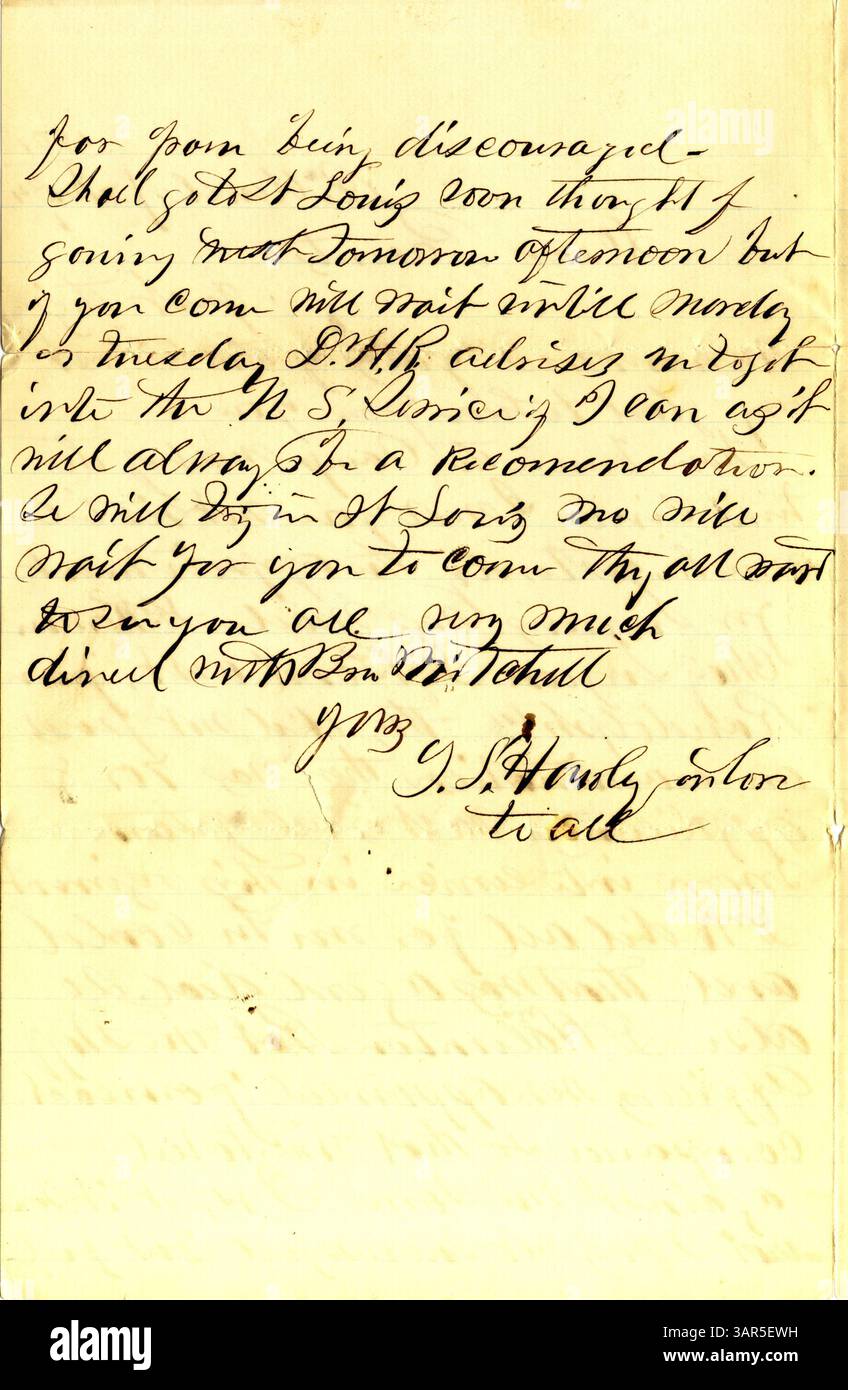 far from being discouraged -
Shall go to St Louis soon thought of
going next tomorrow afternoon but
if you come will wait untill Monday
or tuesday D. H. R. advises me to get
into the U S. Service if I can as it
will always be a Recomendation.
So will try in St Louis Mo will
wait for you to come They all want
to see you all very much
direct with Bro Mitchell
yours
J. S. Hawly in love
to all
alamy
Image ID: 3AR5EWH
www.alamy.com